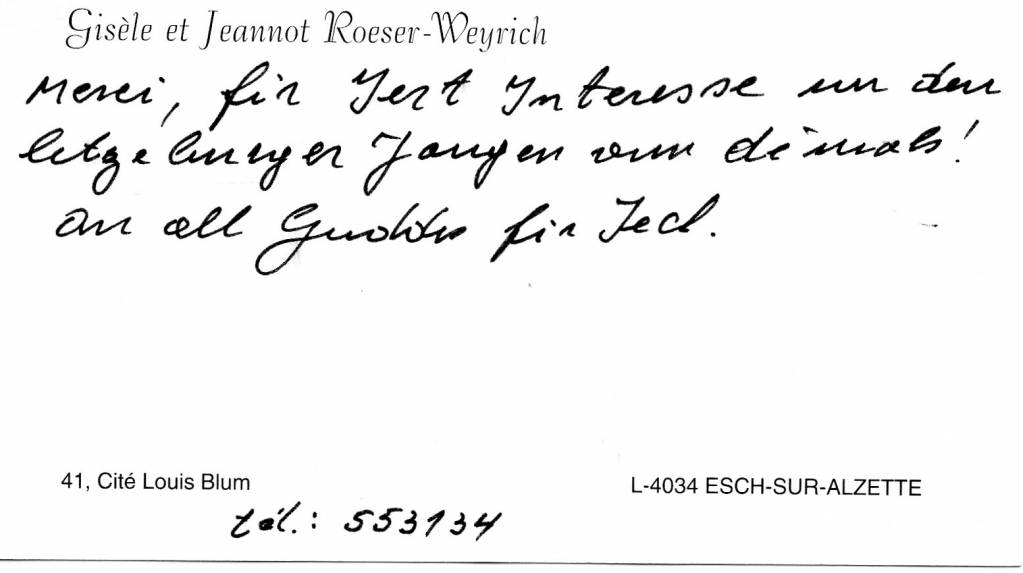 Gisèle et Jeannot Roeser-Weyrich
Merci, fir Iert Interesse un den
letzeburger Jongen vun démols!
An all Guddes fir Iech.
41, Cité Louis Blum
L-4034 ESCH-SUR-ALZETTE
tél.: 553134